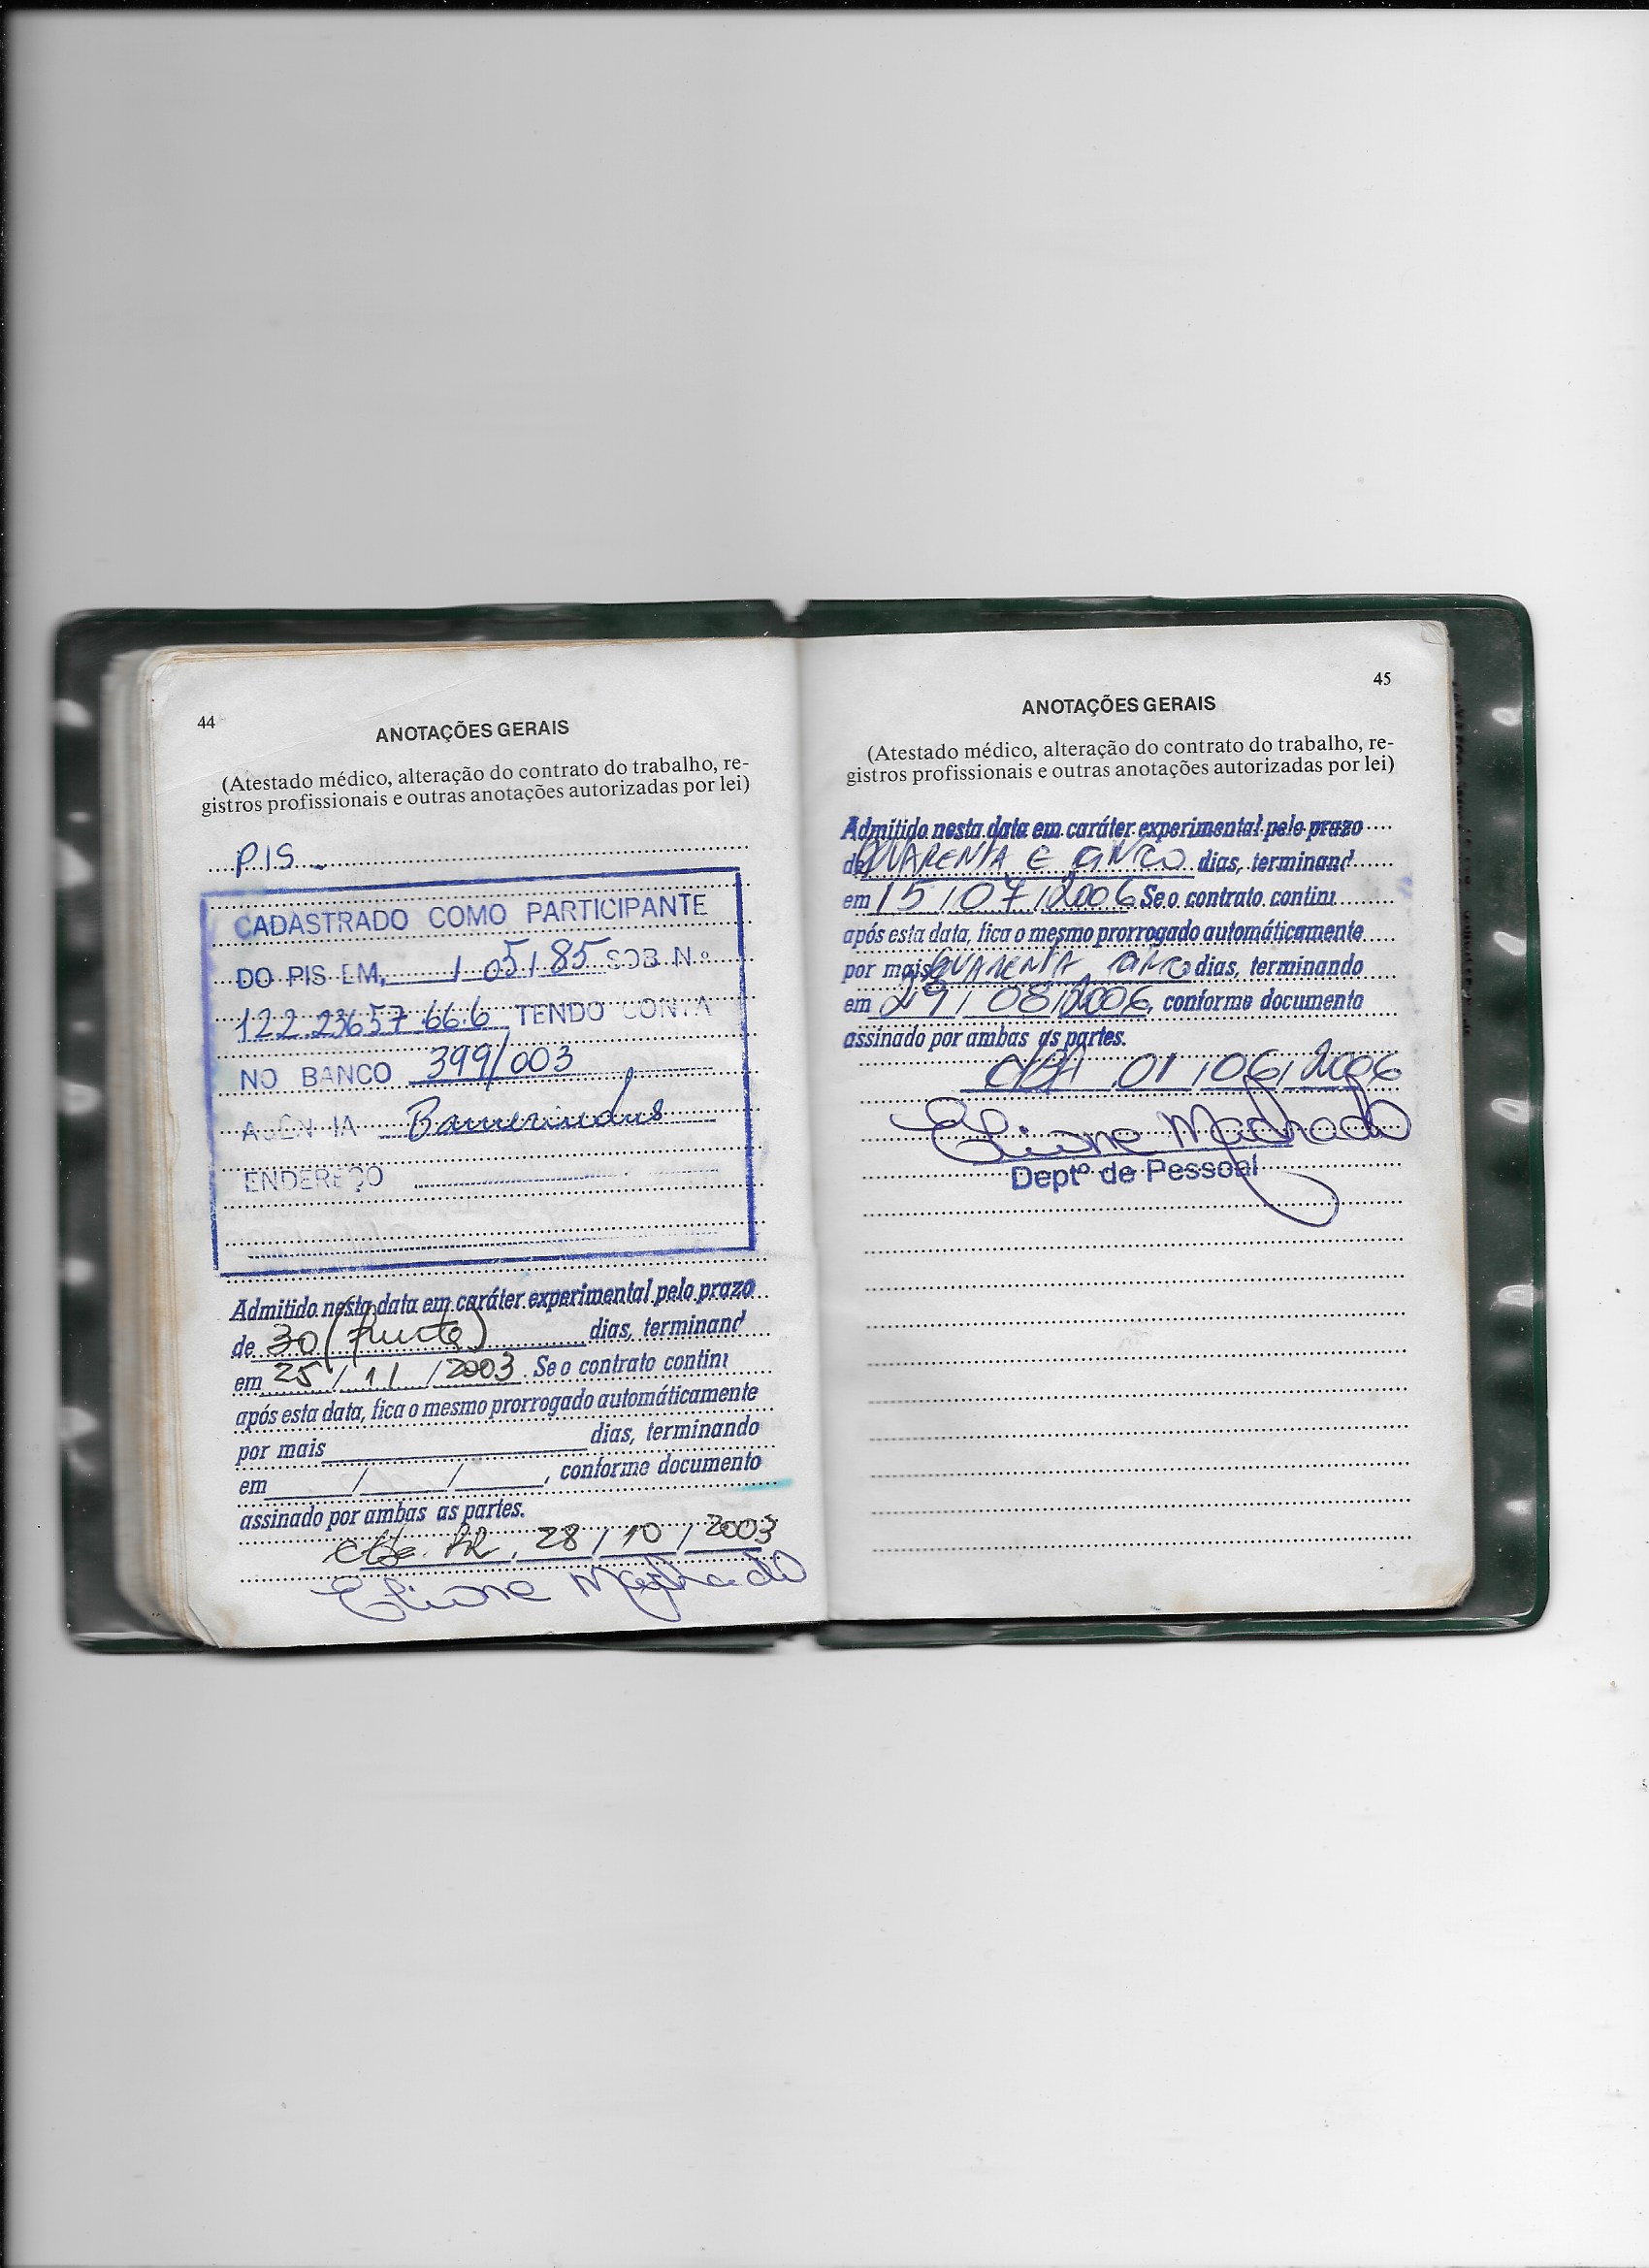 44
ANOTAÇÕES GERAIS
(Atestado médico, alteração do contrato do trabalho, re-
gistros profissionais e outras anotações autorizadas por lei)
P.I.S.
CADASTRADO COMO PARTICIPANTE
DO PIS EM, 1 05/85 SOB N.º
122 23657 66.6 TENDO CONTA
NO BANCO 399/003
AGÊN IA Bamerindus
ENDEREÇO
Admitido nesta data em caráter experimental pelo prazo
de 30 (trinta) dias, terminand
em 25 / 11 / 2003. Se o contrato continu
após esta data, fica o mesmo prorrogado automáticamente
por mais dias, terminando
em / / , conforme documento
assinado por ambas as partes.
PR, 28 / 10 / 2003
Eliane Machado
45
ANOTAÇÕES GERAIS
(Atestado médico, alteração do contrato do trabalho, re-
gistros profissionais e outras anotações autorizadas por lei)
Admitido nesta data em caráter experimental pelo prazo
de QUARENTA E CINCO dias, terminand
em 15 / 07 / 2006 Se o contrato continu
após esta data, fica o mesmo prorrogado automáticamente
por mais QUARENTA CINCO dias, terminando
em 29 / 08 / 2006, conforme documento
assinado por ambas as partes.
CBA 01 / 06 / 2006
Eliane Machado
Deptº de Pessoal